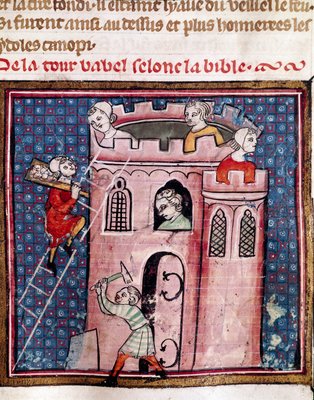 et la cire fondi. il estaint lyaue du veissel le feu.
si furent ainsi au dessus et plus honnerees les
ydoles canopi.
De la tour vabel selonc la bible.